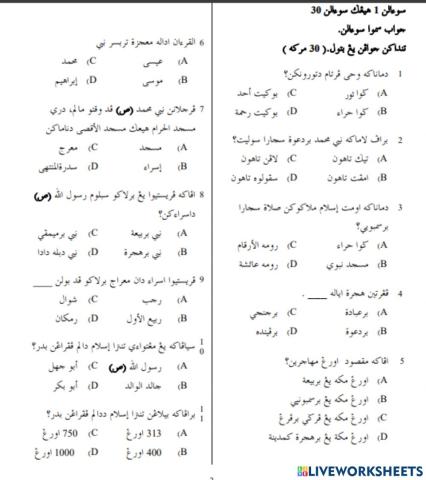 سوءالن 1 هيڠݢ سوءالن 30
جواب سموا سوءالن.
تنداكن جواڤن يڠ بتول. ( 30 مركه )
1 دماناكه وحي ڤرتام دتورونكن؟
A) ڬوا ثور C) بوكيت أحد
B) ڬوا حراء D) بوكيت رحمة
2 براڤ لاماكه نبي محمد بردعوة سچارا سوليت؟
A) تيݢ تاهون C) لاڤن تاهون
B) امڤت تاهون D) سڤولوه تاهون
3 دماناكه اومت إسلام ملاكوكن صلاة سچارا
برسمبوڽي؟
A) ڬوا حراء C) رومه الأرقام
B) مسجد نبوي D) رومه عائشة
4 ڤڠرتين هجرة اياله ____ .
A) برعبادة C) برجنجي
B) بردعوة D) برڤينده
5 اڤاكه مقصود اورڠ مهاجرين؟
A) اورڠ مكه يڠ بربيعة
B) اورڠ مكه يڠ برسمبوڽي
C) اورڠ مكه يڠ ڤركي برڤرڠ
D) اورڠ مكة يڠ برهجرة كمدينة
6 القرءان اداله معجزة تربسر نبي
A) عيسى C) محمد
B) موسى D) إبراهيم
7 ڤرجالانن نبي محمد (ص) ڤد وقتو مالم، دري
مسجد الحرام هيڠݢ مسجد الأقصى دناماكن
A) مسجد C) معرج
B) إسراء D) سدرةالمنتهى
8 اڤاكه ڤريستيوا يڠ برلاكو سبلوم رسول الله (ص)
داسراءكن؟
A) نبي بربيعة C) نبي برميمڤي
B) نبي برهجرة D) نبي دبله دادا
9 ڤريستيوا اسراء دان معراج برلاكو ڤد بولن ____
A) رجب C) شوال
B) ربيع الأول D) رمكان
10 سياڤاكه يڠ مڠتواءي تنترا إسلام دالم ڤڤراڠن بدر؟
A) رسول الله (ص) C) أبو جهل
B) خالد الوالد D) أبو بكر
11 براڤاكه بيلاڠن تنترا إسلام ددالم ڤڤراڠن بدر؟
A) 313 اورڠ C) 750 اورڠ
B) 400 اورڠ D) 1000 اورڠ
2
LIVEWORKSHEETS